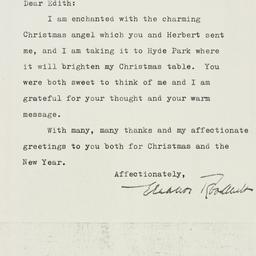 Dear Edith:
I am enchanted with the charming
Christmas angel which you and Herbert sent
me, and I am taking it to Hyde Park where
it will brighten my Christmas table. You
were both sweet to think of me and I am
grateful for your thought and your warm
message.
With many, many thanks and my affectionate
greetings to you both for Christmas and the
New Year.
Affectionately,
Eleanor Roosevelt